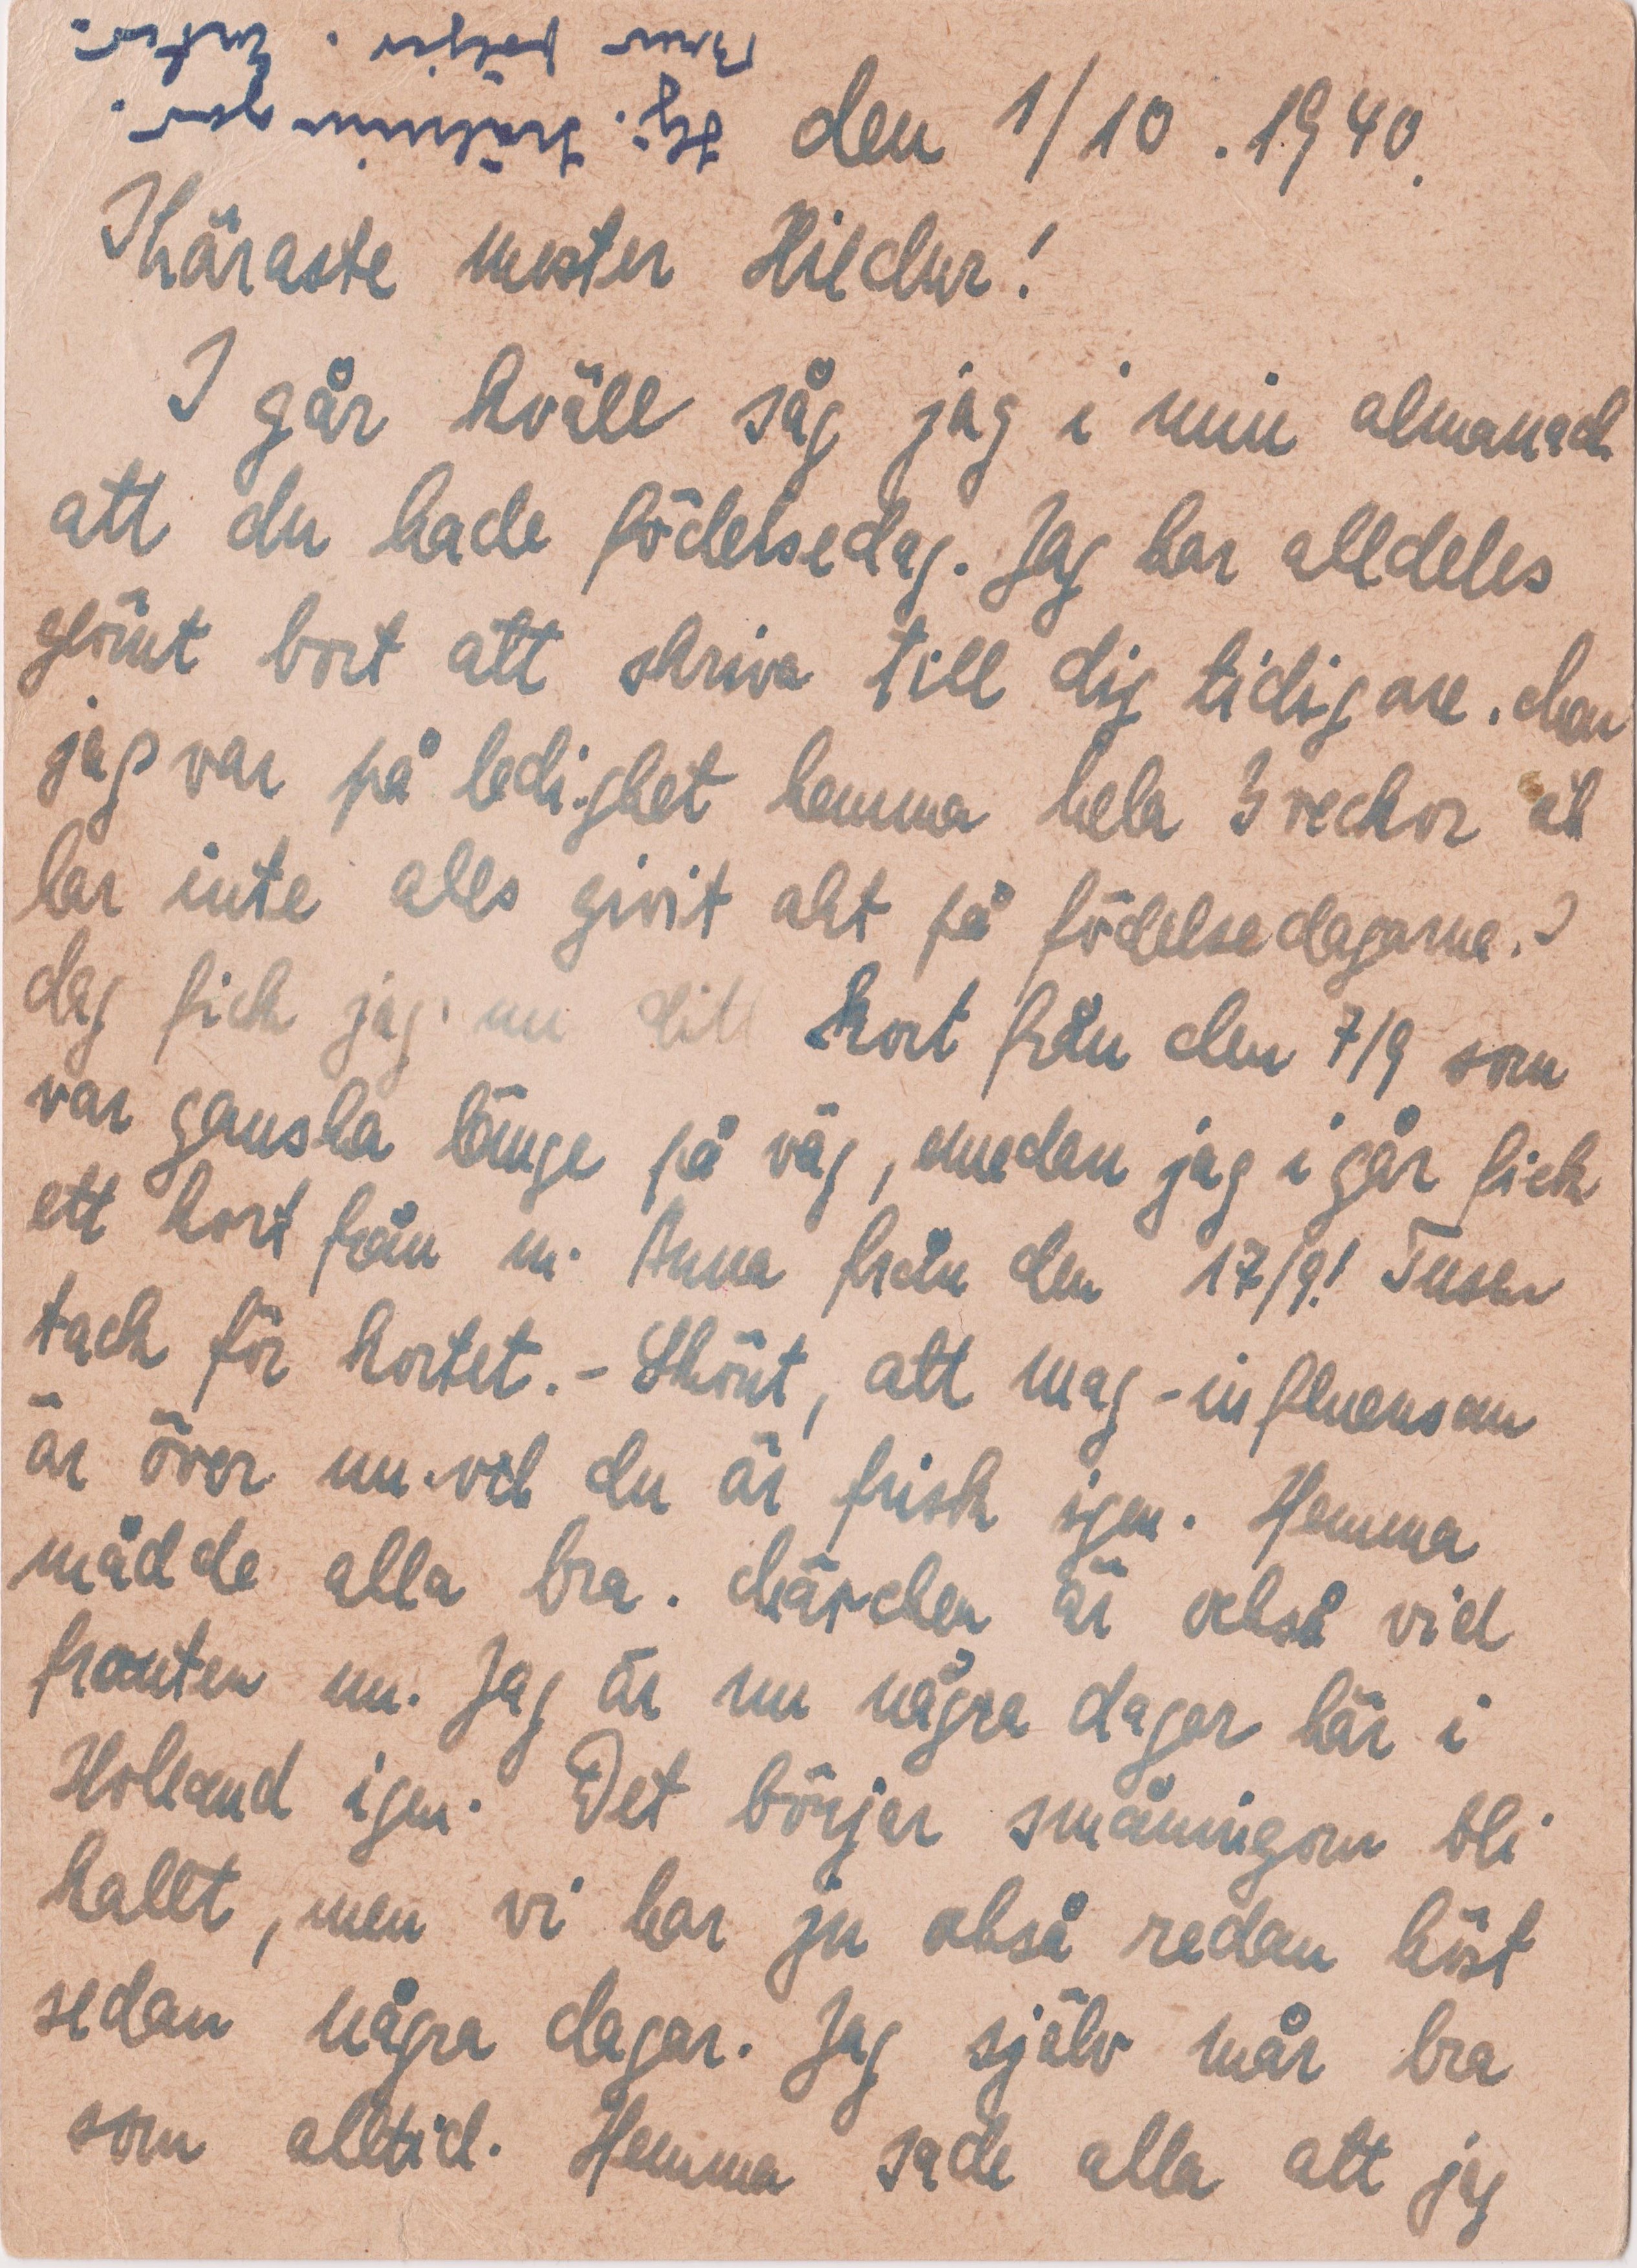 den 1/10.1940.
Käraste moster Hildur!
I går kväll såg jag i min almanach
att du hade födelsedag. Jag har alldeles
glömt bort att skriva till dig tidigare. Men
jag var på ledighet hemma hela 3 veckor och
har inte alls givit akt på födelsedagarna. I
dag fick jag nu ditt kort från den 7/9 som
var ganska länge på väg, emedan jag i går fick
ett kort från m. Anna från den 17/9! Tusen
tack för kortet. - Skönt, att mag-influensan
är över nu och du är frisk igen. Hemma
mådde alla bra. är också vid
fronten nu. Jag är nu några dagar här i
Holland igen. Det börjar småningom bli
kallt, men vi har ju också redan höst
sedan några dagar. Jag själv mår bra
som alltid. Hemma sade alla att jag